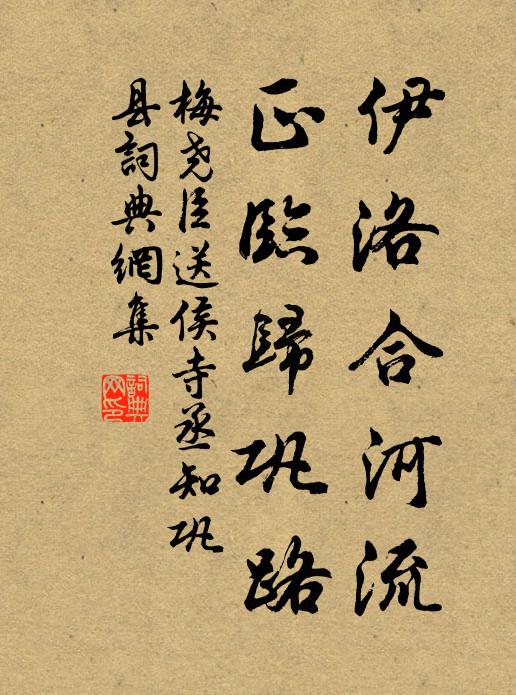 伊洛合河流
正臨歸巩路
梅尧臣送侯寺丞知巩
县詞典網集
詞典
网印